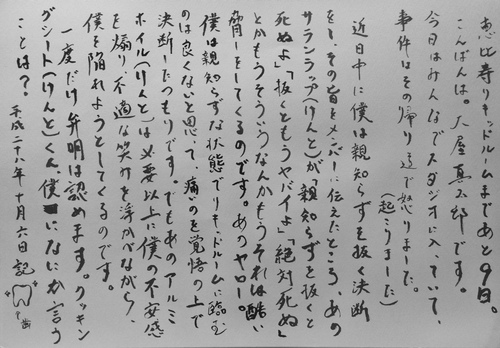 恵比寿リキッドルームまであと9日。
こんばんは。大屋真太郎です。
今日はみんなでスタジオに入っていて、
事件はその帰り道で怒りました。
(起こりました)
近日中に僕は親知らずを抜く決断
をし、その旨をメンバーに伝えたところ、あの
サランラップ(けんと)が親知らずを抜くと
死ぬよ」「抜くともうヤバイよ」「絶対死ぬ」
とかもうそういうなんかもうそれは酷い
脅しをしてくるのです。あのヤロー。
僕は親知らずな状態でリキッドルームに臨む
のは良くないと思って、痛いのを覚悟の上で
決断したつもりです。でもあのアルミ
ホイル(けんと)は必要以上に僕の不安感
を煽り、不適な笑みを浮かべながら、
僕を陥れようとしてくるのです。
一度だけ弁明は認めます。クッキン
グシート(けんと)くん、僕になにか言う
ことは?
平成二十八年十月六日記
歯